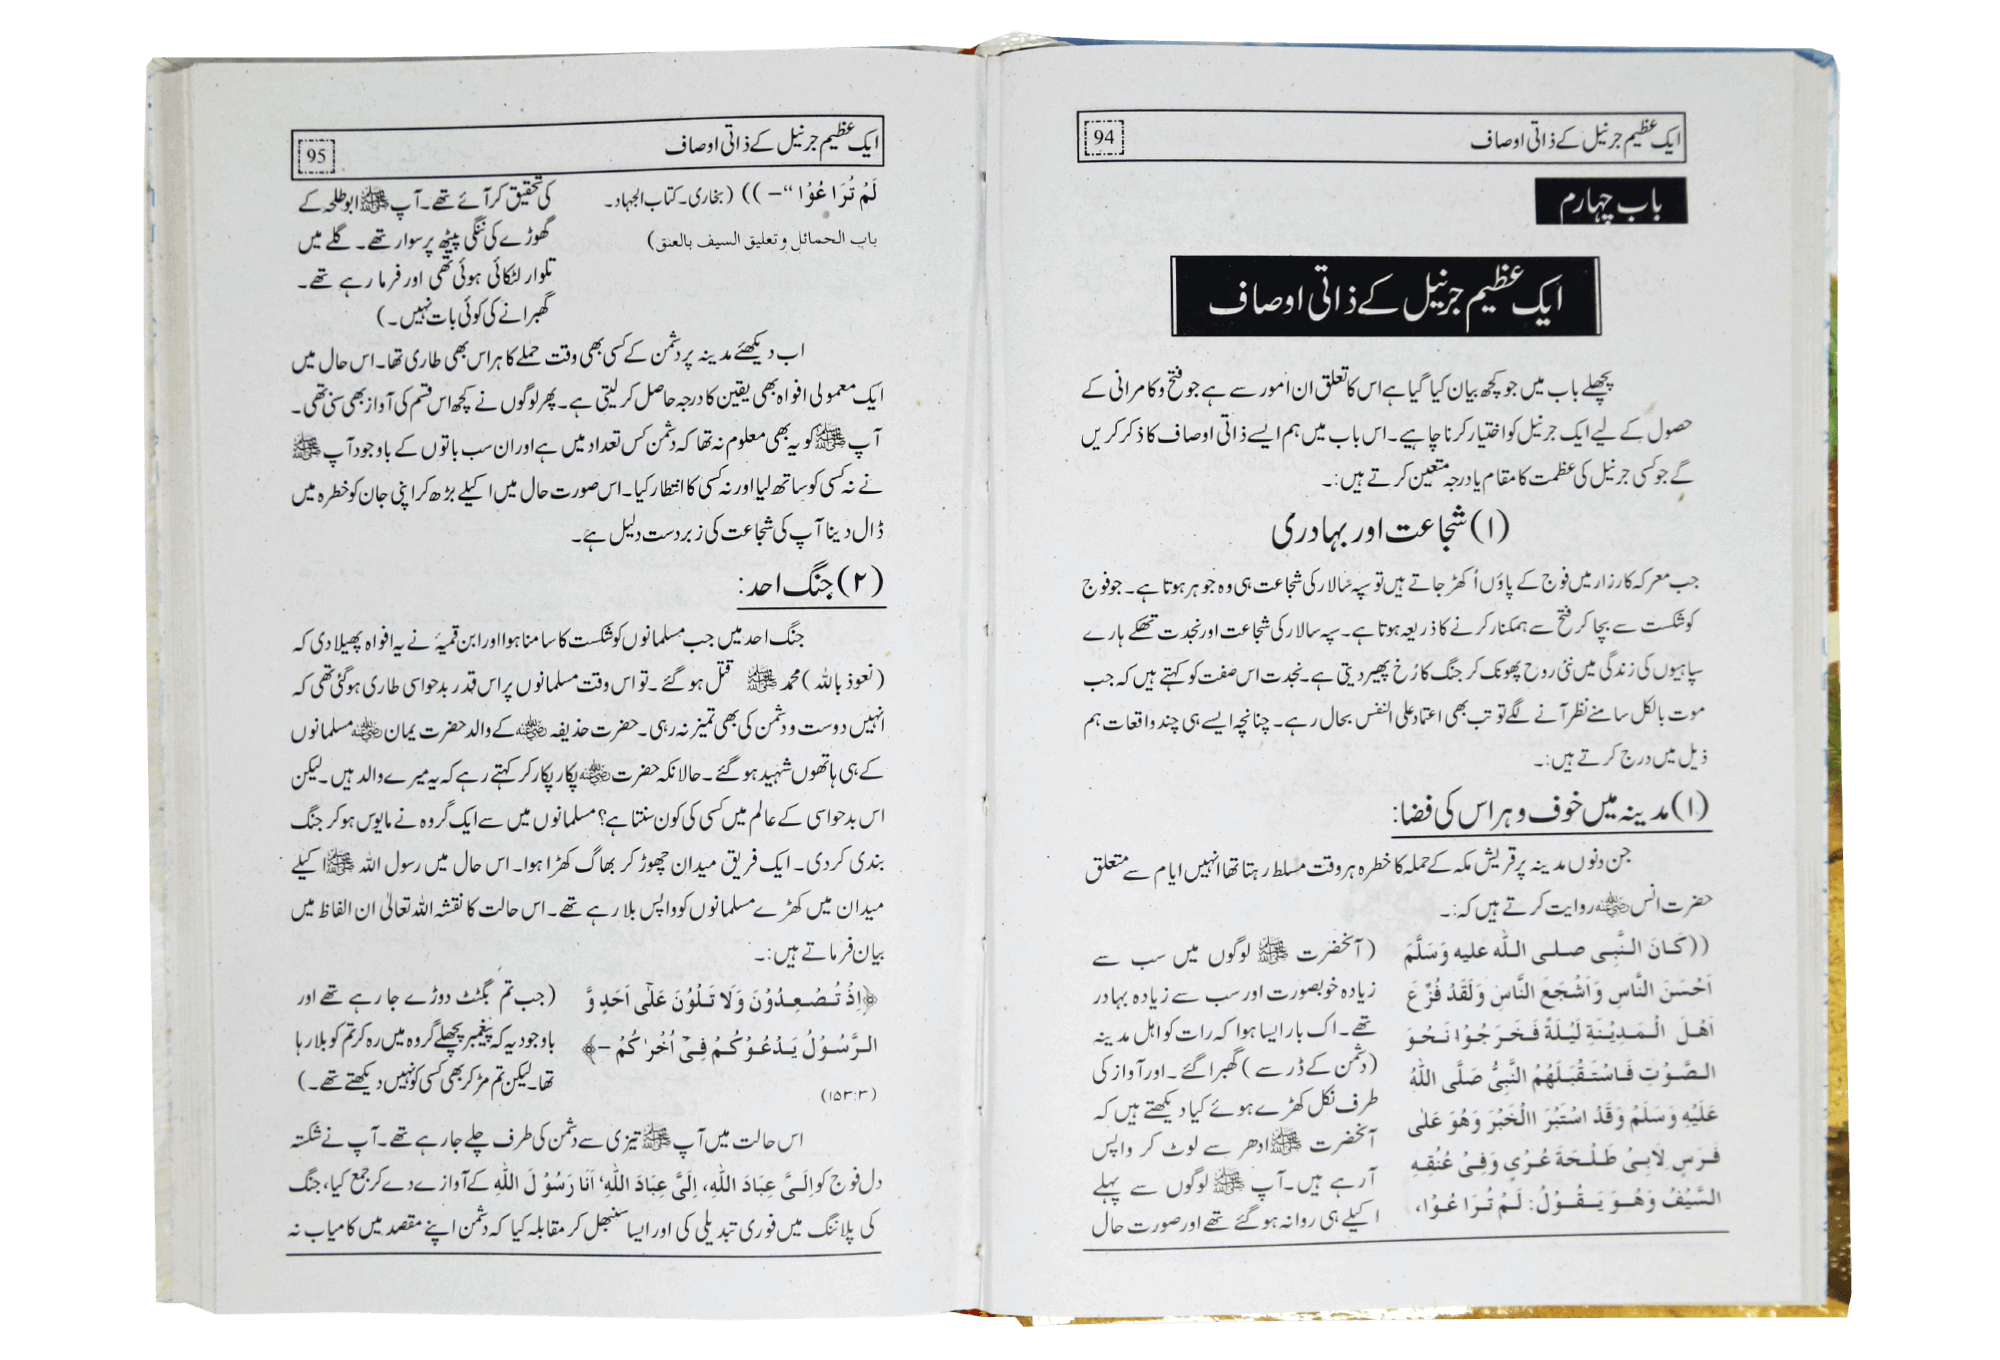 ایک عظیم جرنیل کے ذاتی اوصاف 94
باب چہارم
ایک عظیم جرنیل کے ذاتی اوصاف
پچھلے باب میں جو کچھ بیان کیا گیا ہے اس کا تعلق ان امور سے ہے جو فتح و کامرانی کے
حصول کے لیے ایک جرنیل کو اختیار کرنا چاہیے۔ اس باب میں ہم ایسے ذاتی اوصاف کا ذکر کریں
گے جو کسی جرنیل کی عظمت کا مقام یا درجہ متعین کرتے ہیں:۔
(۱) شجاعت اور بہادری
جب معرکہ کارزار میں فوج کے پاؤں اُکھڑ جاتے ہیں تو سپہ سالار کی شجاعت ہی وہ جوہر ہوتا ہے۔ جو فوج
کو شکست سے بچا کر فتح سے ہمکنار کرنے کا ذریعہ ہوتا ہے۔ سپہ سالار کی شجاعت اور نجدت تھکے ہارے
سپاہیوں کی زندگی میں نئی روح پھونک کر جنگ کا رُخ پھیر دیتی ہے۔ نجدت اس صفت کو کہتے ہیں کہ جب
موت بالکل سامنے نظر آنے لگے تو تب بھی اعتماد علی النفس بحال رہے۔ چنانچہ ایسے ہی چند واقعات ہم
ذیل میں درج کرتے ہیں:۔
(۱) مدینہ میں خوف و ہراس کی فضا:
جن دنوں مدینہ پر قریش مکہ کے حملہ کا خطرہ ہر وقت مسلط رہتا تھا انہیں ایام سے متعلق
حضرت انس رضی اللہ عنہ روایت کرتے ہیں کہ:۔
((كَانَ النَّبِى صلى الله عليه وَسَلَّمَ
اَحْسَنَ النَّاسِ وَاَشْجَعَ النَّاسِ وَلَقَدْ فُزِّعَ
اَهْلَ الْمَدِيْنَةِ لَيْلَةً فَخَرَجُوْا نَحْوَ
الصَّوْتِ فَاسْتَقْبَلَهُمُ النَّبِىُّ صَلَّى اللهُ
عَلَيْهِ وَسَلَمْ وَقَدْ اسْتَبْرَ االْخَبْرَ وَهُوَ عَلٰى
فَرَسٍ لِاَبِىْ طَلْحَةَ عُرْىٍ وَفِىْ عُنُقِهِ
السَّيْفُ وَهُوَ يَقُوْلُ: لَمْ تُرَاعُوْا،
(آنحضرت ﷺ لوگوں میں سب سے
زیادہ خوبصورت اور سب سے زیادہ بہادر
تھے۔ اک بار ایسا ہوا کہ رات کو اہل مدینہ
(دشمن کے ڈر سے) گھبرا گئے۔ اور آواز کی
طرف نکل کھڑے ہوئے کیا دیکھتے ہیں کہ
آنحضرت ﷺ ادھر سے لوٹ کر واپس
آرہے ہیں۔ آپ ﷺ لوگوں سے پہلے
اکیلے ہی روانہ ہو گئے تھے اور صورت حال
ایک عظیم جرنیل کے ذاتی اوصاف 95
لَمْ تُرَاعُوْا“۔)) (بخاری۔ کتاب الجہاد۔
باب الحمائل و تعليق السيف بالعنق)
کی تحقیق کر آئے تھے۔ آپ ﷺ ابوطلحہ کے
گھوڑے کی ننگی پیٹھ پر سوار تھے۔ گلے میں
تلوار لٹکائی ہوئی تھی اور فرما رہے تھے۔
گھبرانے کی کوئی بات نہیں۔)
اب دیکھئے مدینہ پر دشمن کے کسی بھی وقت حملے کا ہراس بھی طاری تھا۔ اس حال میں
ایک معمولی افواہ بھی یقین کا درجہ حاصل کر لیتی ہے۔ پھر لوگوں نے کچھ اس قسم کی آواز بھی سنی تھی۔
آپ ﷺ کو یہ بھی معلوم نہ تھا کہ دشمن کس تعداد میں ہے اور ان سب باتوں کے باوجود آپ ﷺ
نے نہ کسی کو ساتھ لیا اور نہ کسی کا انتظار کیا۔ اس صورت حال میں اکیلے بڑھ کر اپنی جان کو خطرہ میں
ڈال دینا آپ کی شجاعت کی زبردست دلیل ہے۔
(۲) جنگ احد:
جنگ احد میں جب مسلمانوں کو شکست کا سامنا ہوا اور ابن قمیہ نے یہ افواہ پھیلا دی کہ
(نعوذ باللہ) محمد ﷺ قتل ہو گئے۔ تو اس وقت مسلمانوں پر اس قدر بدحواسی طاری ہو گئی تھی کہ
انہیں دوست و دشمن کی بھی تمیز نہ رہی۔ حضرت حذیفہ رضی اللہ عنہ کے والد حضرت یمان رضی اللہ عنہ مسلمانوں
کے ہی ہاتھوں شہید ہو گئے۔ حالانکہ حضرت رضی اللہ عنہ پکار پکار کر کہتے رہے کہ یہ میرے والد ہیں۔ لیکن
اس بدحواسی کے عالم میں کسی کی کون سنتا ہے؟ مسلمانوں میں سے ایک گروہ نے مایوس ہو کر جنگ
بندی کر دی۔ ایک فریق میدان چھوڑ کر بھاگ کھڑا ہوا۔ اس حال میں رسول اللہ ﷺ اکیلے
میدان میں کھڑے مسلمانوں کو واپس بلا رہے تھے۔ اس حالت کا نقشہ اللہ تعالیٰ ان الفاظ میں
بیان فرماتے ہیں:۔
﴿اِذْ تُصْعِدُوْنَ وَلَا تَلْوٗنَ عَلٰٓى اَحَدٍ وَّ
الرَّسُوْلُ يَدْعُوْكُمْ فِىْٓ اُخْرٰكُمْ -﴾
(۱۵۳:۳)
(جب تم بگٹٹ دوڑے جا رہے تھے اور
باوجود یہ کہ پیغمبر پچھلے گروہ میں رہ کر تم کو بلا رہا
تھا۔ لیکن تم مڑ کر بھی کسی کو نہیں دیکھتے تھے۔)
اس حالت میں آپ ﷺ تیزی سے دشمن کی طرف چلے جا رہے تھے۔ آپ نے شکستہ
دل فوج کو اِلَىَّ عِبَادَ اللهِ، اِلَىَّ عِبَادَ اللهِ' اَنَا رَسُوْلَ اللهِ کے آوازے دے کر جمع کیا، جنگ
کی پلاننگ میں فوری تبدیلی کی اور ایسا سنبھل کر مقابلہ کیا کہ دشمن اپنے مقصد میں کامیاب نہ